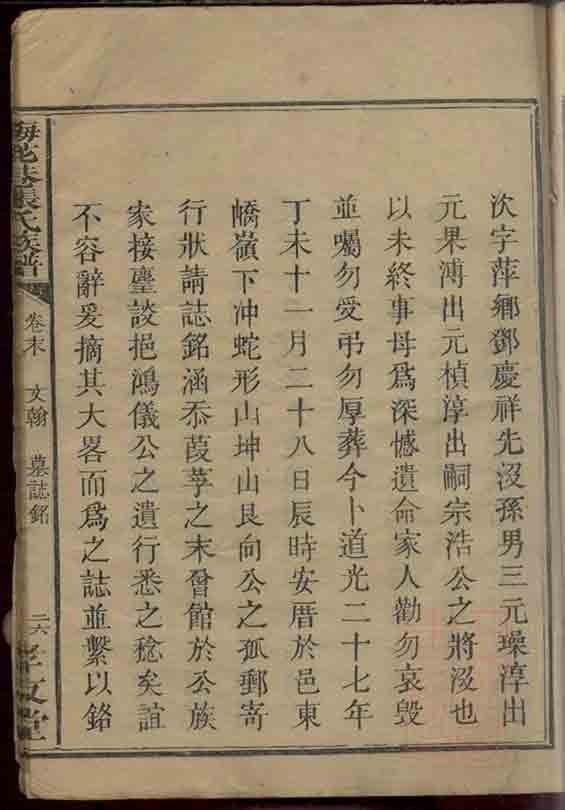 次字萍鄉鄧慶祥先沒孫男三元璪淳出
元果溥出元楨淳出嗣宗浩公之將沒也
以未終事母爲深憾遺命家人勸勿哀毀
並囑勿受弔勿厚葬今卜道光二十七年
丁未十一月二十八日辰時安厝於邑東
嶠嶺下冲蛇形山坤山艮向公之孤郵寄
行狀請誌銘涵忝葭莩之末曾館於公族
家接塵談挹鴻儀公之遺行悉之稔矣誼
不容辭爰摘其大畧而爲之誌並繫以銘
梅花巷張氏族譜
卷末
文翰
墓誌銘
二六
孝友堂